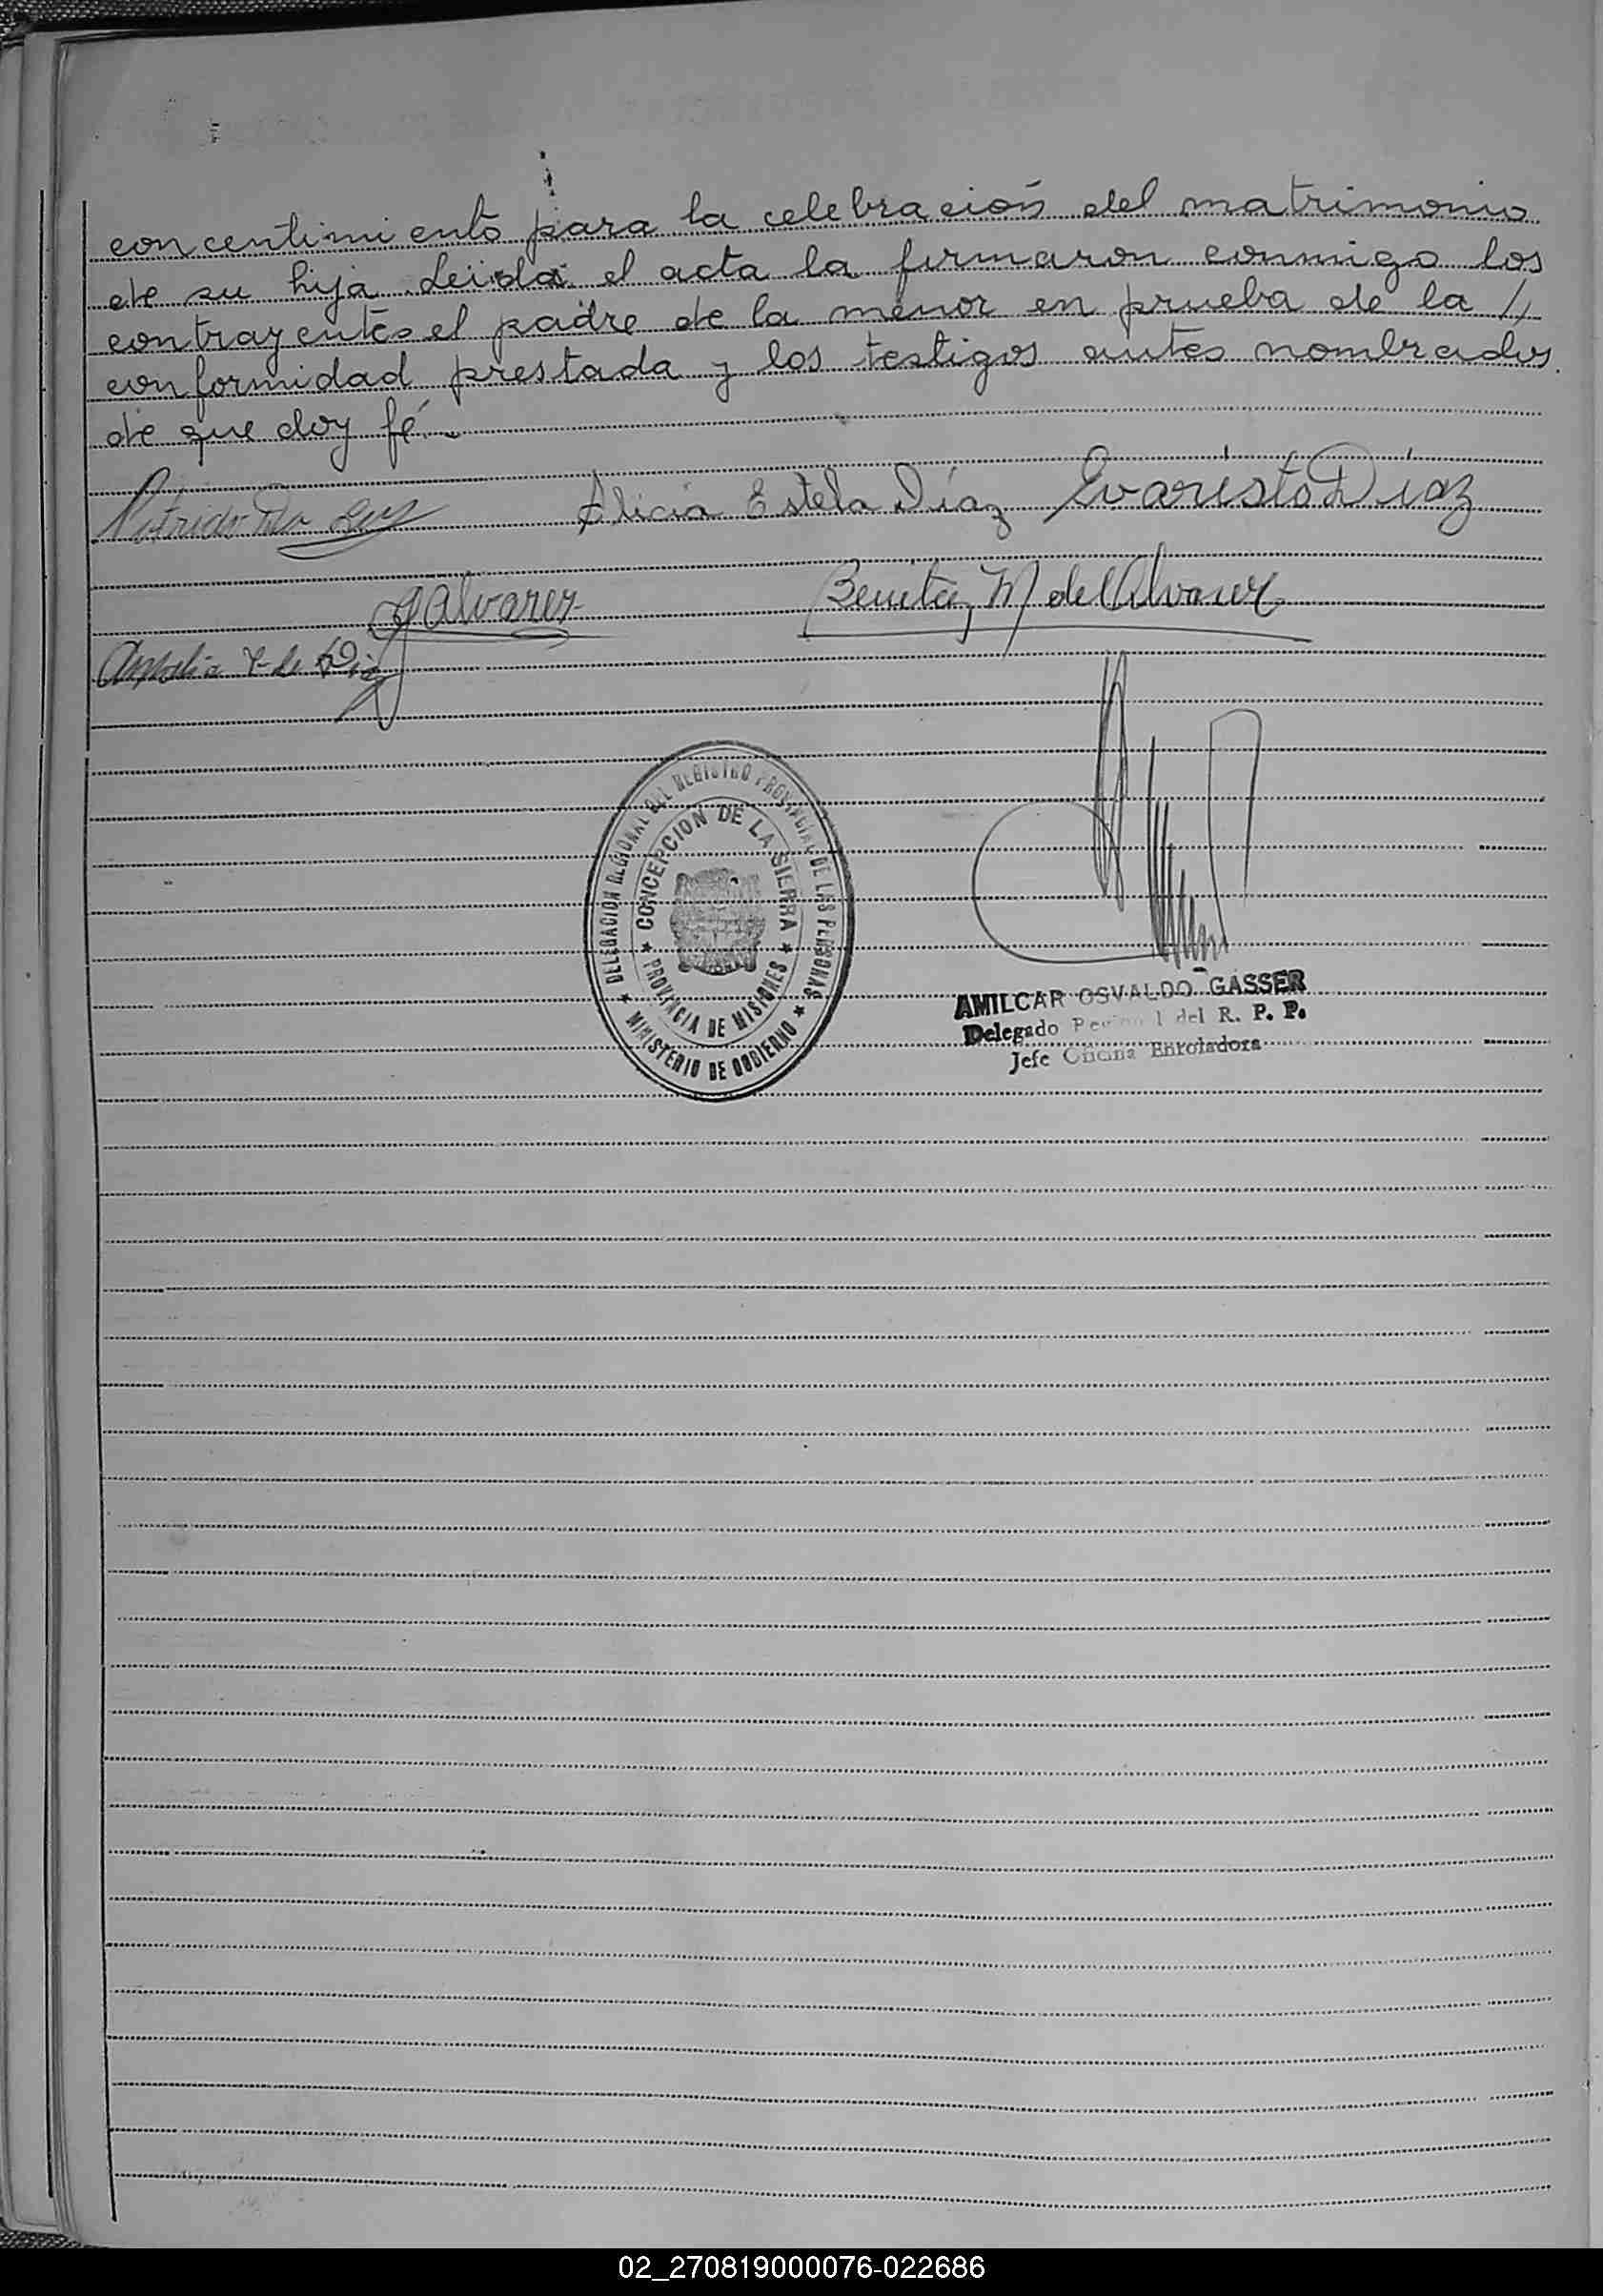 concentimiento para la celebración del matrimonio
de su hija. Leida el acta la firmaron conmigo los
contrayentes el padre de la menor en prueba de la //
conformidad prestada y los testigos antes nombrados.
de que doy fé.-
Da Luz Alicia Estela Díaz Evaristo Díaz
Alvarez Benita M de Alvarez
de
DELEGACION REGIONAL DEL REGISTRO PROVINCIAL DE LAS PERSONAS
★ MINISTERIO DE GOBIERNO ★
CONCEPCION DE LA SIERRA
★ PROVINCIA DE MISIONES ★
AMILCAR OSVALDO GASSER
Delegado Regional del R. P. P.
Jefe Oficina Enroladora
02_270819000076-022686